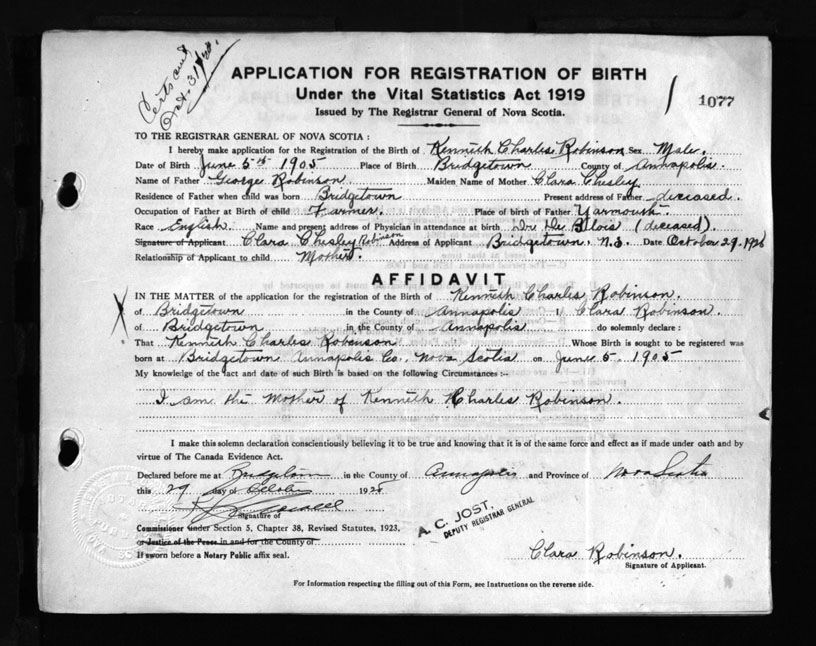 Certs and
Oct. 31
APPLICATION FOR REGISTRATION OF BIRTH
Under the Vital Statistics Act 1919
Issued by The Registrar General of Nova Scotia.
1077
TO THE REGISTRAR GENERAL OF NOVA SCOTIA :
I hereby make application for the Registration of the Birth of Kenneth Charles Robinson Sex Male.
Date of Birth June 5th 1905 Place of Birth Bridgetown County of Annapolis.
Name of Father George Robinson Maiden Name of Mother Clara Chesley
Residence of Father when child was born Bridgetown Present address of Father deceased.
Occupation of Father at Birth of child Farmer. Place of birth of Father Yarmouth.
Race English. Name and present address of Physician in attendance at birth Dr De Blois (deceased).
Signature of Applicant Clara Chesley Robinson Address of Applicant Bridgetown, N.S. Date October 29. 1926
Relationship of Applicant to child Mother.
AFFIDAVIT
IN THE MATTER of the application for the registration of the Birth of Kenneth Charles Robinson.
of Bridgetown in the County of Annapolis I, Clara Robinson.
of Bridgetown in the County of Annapolis do solemnly declare :
That Kenneth Charles Robinson Whose Birth is sought to be registered was
born at Bridgetown Annapolis Co. Nova Scotia on June 5. 1905
My knowledge of the fact and date of such Birth is based on the following Circumstances :-
I am the Mother of Kenneth Charles Robinson.
I make this solemn declaration conscientiously believing it to be true and knowing that it is of the same force and effect as if made under oath and by
virtue of The Canada Evidence Act.
Declared before me at Bridgetown in the County of Annapolis and Province of Nova Scotia
this 29 day of October 192
Signature of
Commissioner under Section 5, Chapter 38, Revised Statutes, 1923.
or Justice of the Peace in and for the County of
If sworn before a Notary Public affix seal.
A. C. JOST.
DEPUTY REGISTRAR GENERAL
Clara Robinson.
Signature of Applicant.
For Information respecting the filling out of this Form, see Instructions on the reverse side.